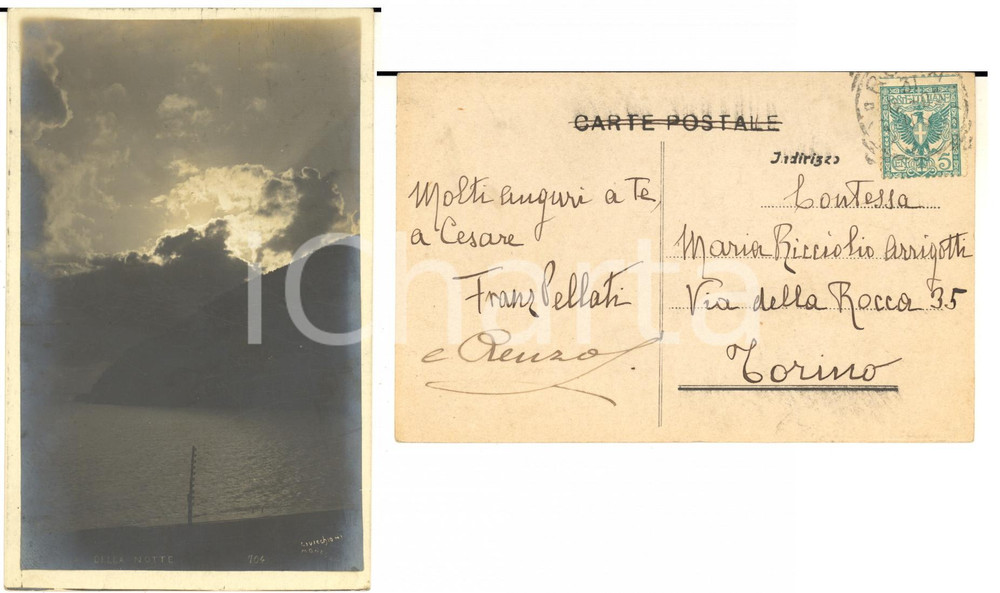 BELLA NOTTE 704
CARTE POSTALE
Indirizzo
Molti auguri a te,
a Cesare
Franz Pellati
e Renzo
Contessa
Maria Ricciolio Arrigotti
Via della Rocca 35
Torino
POSTE ITALIANE
CENT. 5
iCharta